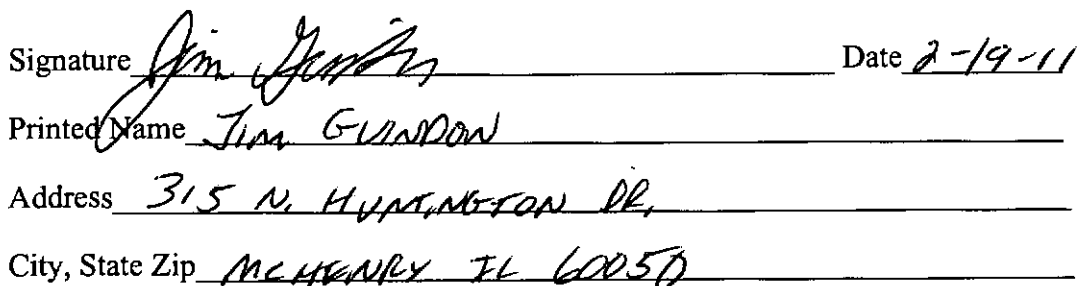 Signature Jim Guindon Date 2-19-11
Printed Name JIM GUINDON
Address 315 N. HUNTINGTON DR.
City, State Zip MCHENRY IL 60050